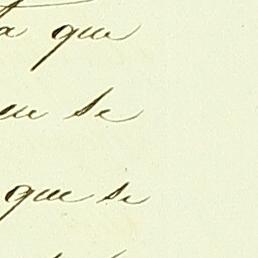 a que
se
que se